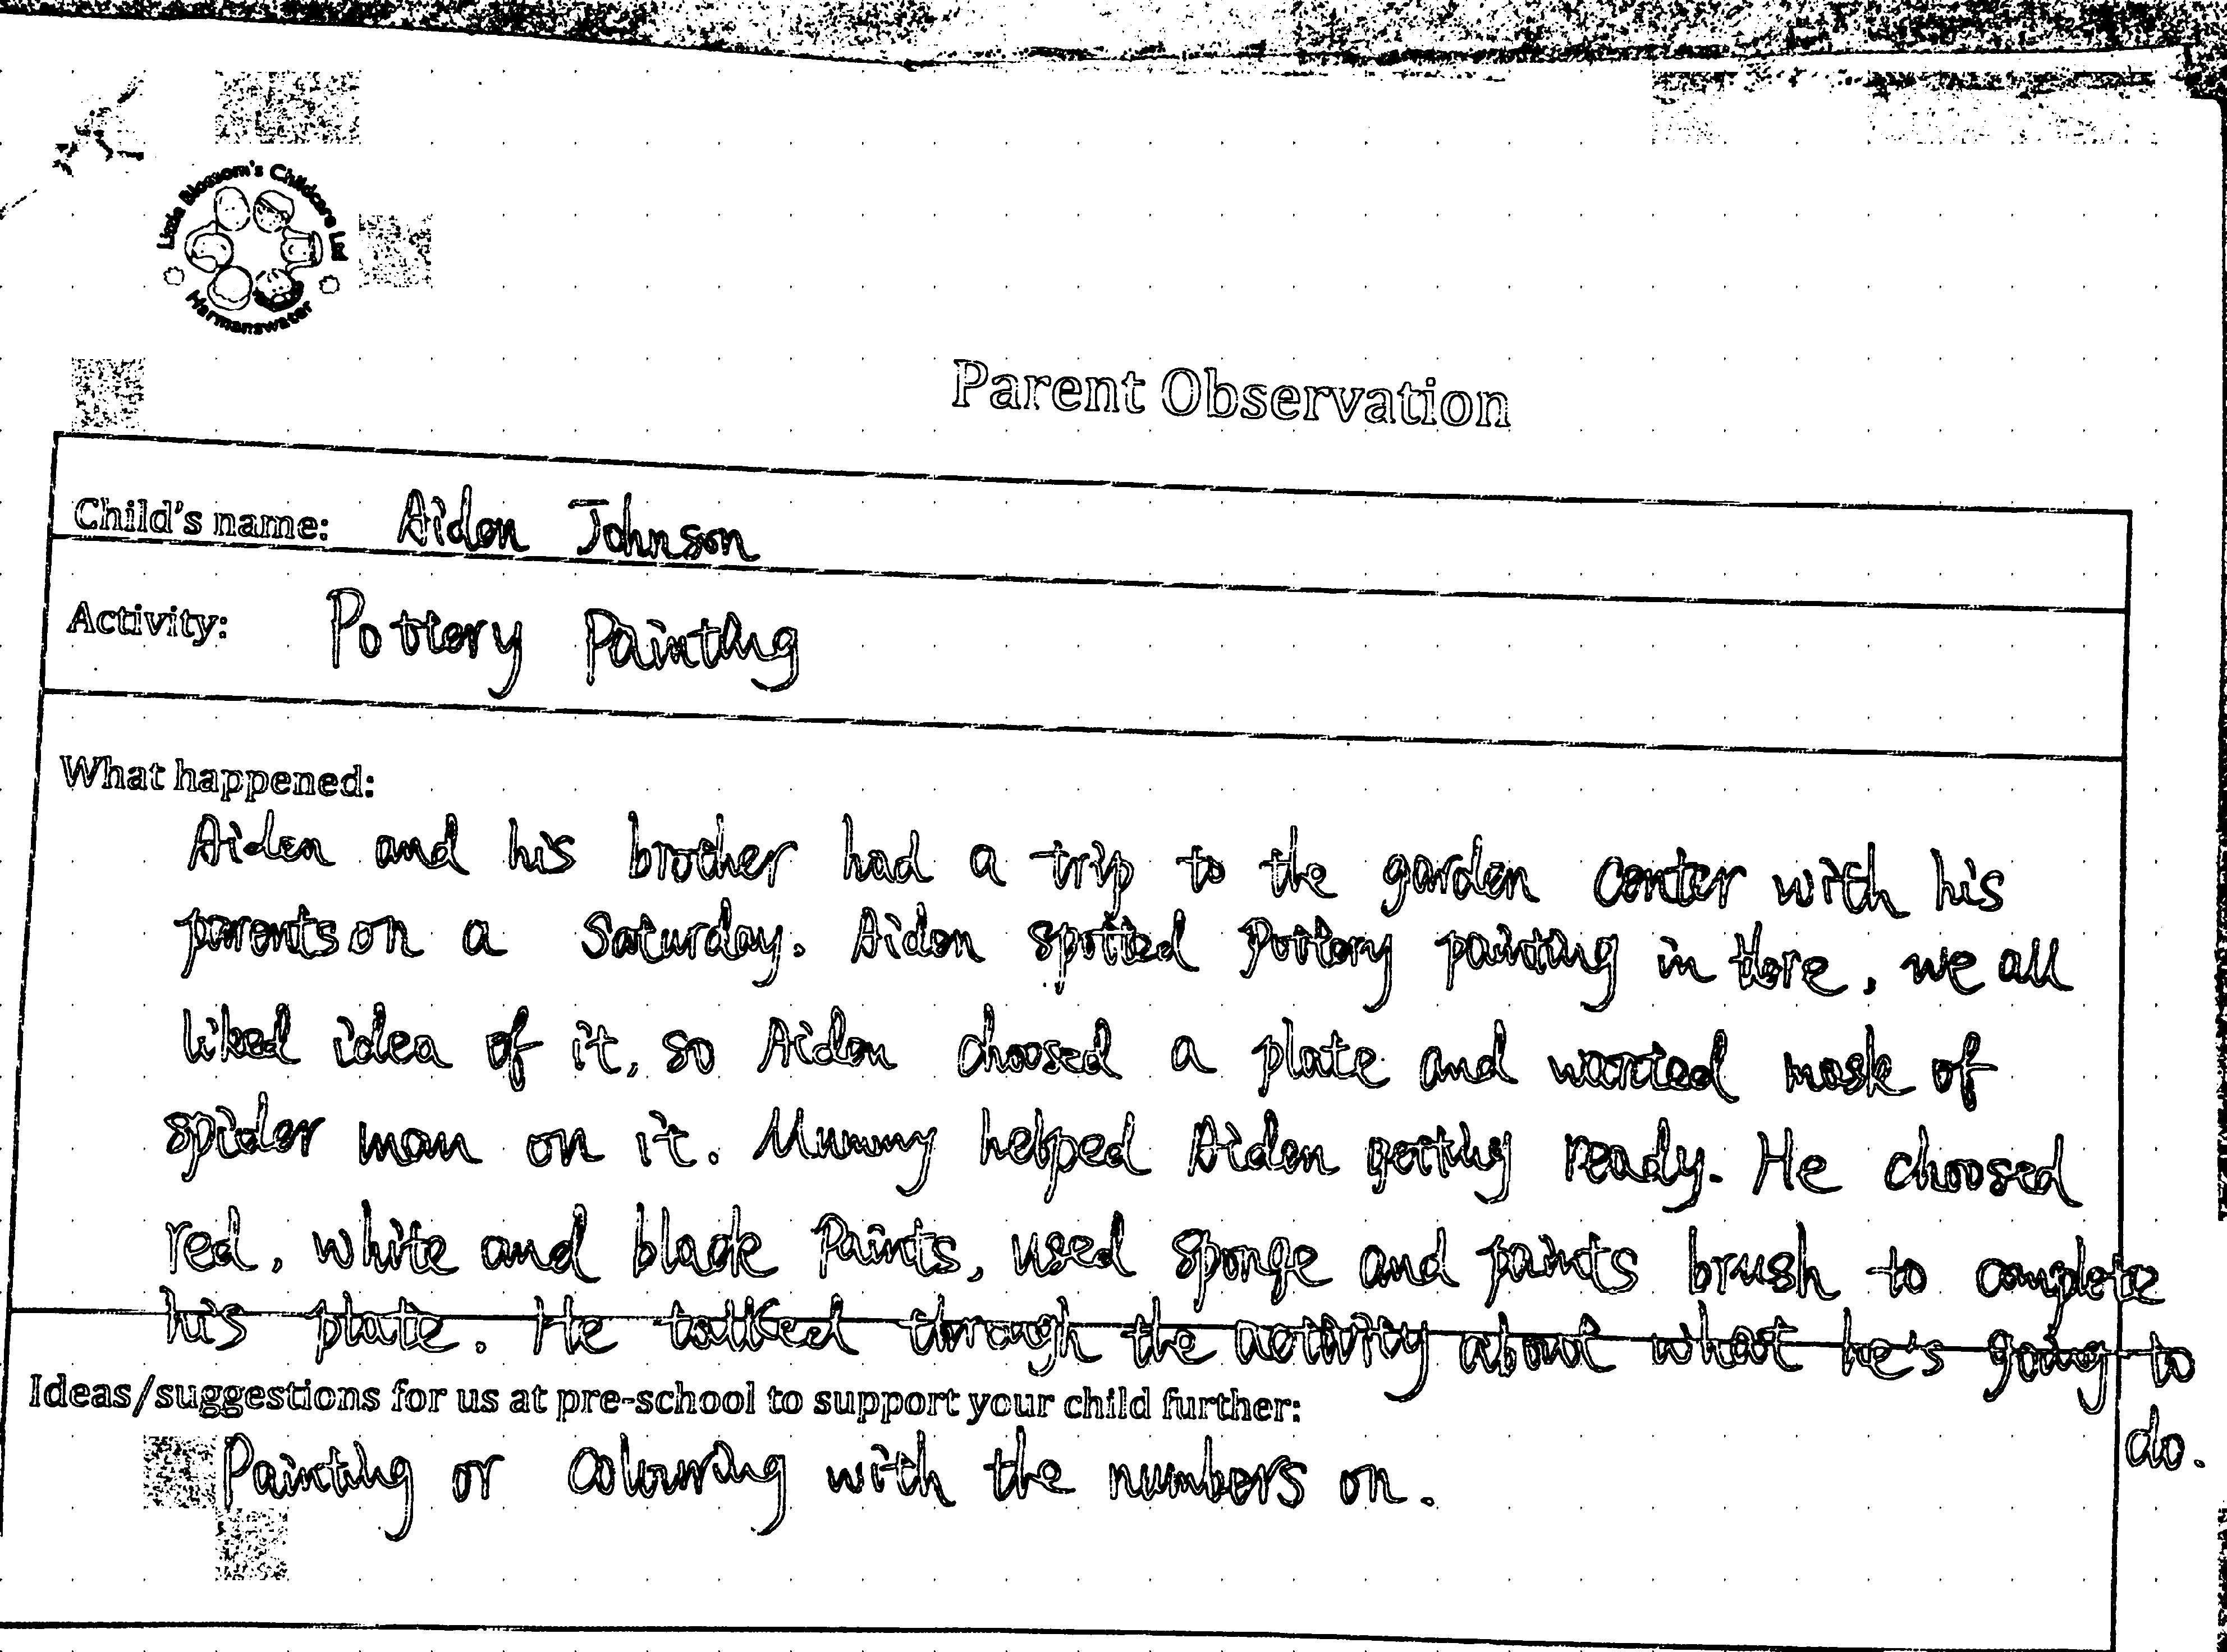 Little Blossom's Childcare Ltd
Harmanswater
Parent Observation
Child's name: Aiden Johnson
Activity: Pottery Painting
What happened:
Aiden and his brother had a trip to the garden center with his
parents on a Saturday. Aiden spotted Pottery painting in there, we all
liked idea of it, so Aiden choosed a plate and wanted mask of
spider man on it. Mummy helped Aiden getting ready. He choosed
red, white and black Paints, used sponge and paints brush to complete
his plate. He talked through the activity about what he's going to
do.
Ideas/suggestions for us at pre-school to support your child further:
Painting or colouring with the numbers on.